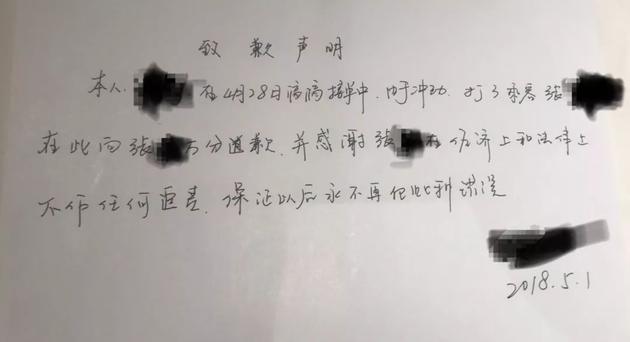 致歉声明
本人 在4月28日滴滴接单中,由于冲动,打了乘客张
在此向张 万分道歉,并感谢张 在经济上和法律上
不作任何追 . 保证以后永不再犯此 错误
2018.5.1